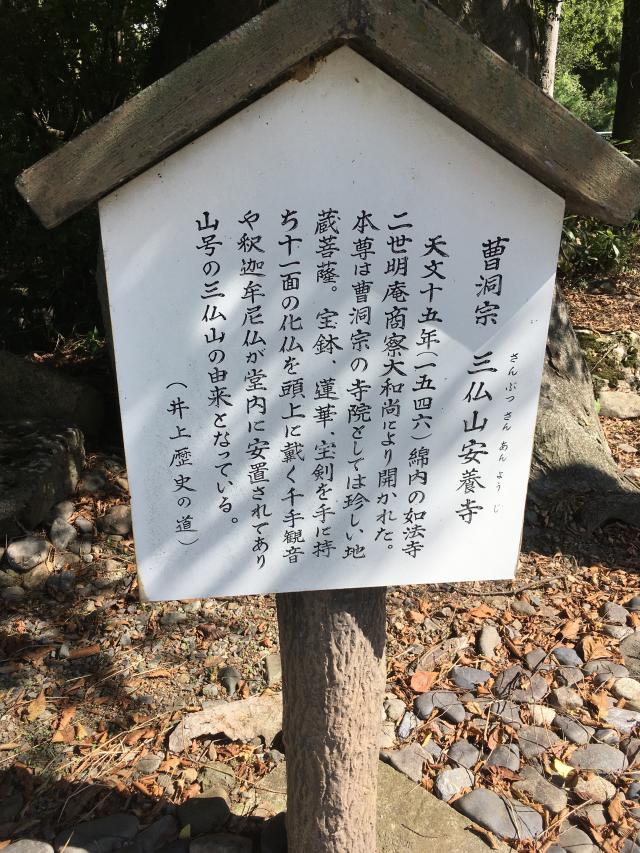 曹洞宗 三仏山安養寺
さんぶつさんあんようじ
天文十五年(一五四六)綿内の如法寺
二世明庵商察大和尚により開かれた。
本尊は曹洞宗の寺院としては珍しい地
蔵菩薩。宝鉢、蓮華、宝剣を手に持
ち十一面の化仏を頭上に戴く千手観音
や釈迦牟尼仏が堂内に安置されてあり
山号の三仏山の由来となっている。
(井上歴史の道)